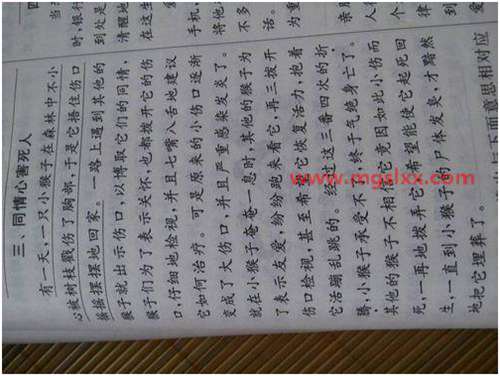 时,银行
到处是
清醒地
在这生
手机,
将他
不多
话。
为重
三、同情心害死人
有一天,一只小猴子在森林中不小
心被树枝戳伤了胸部,于是它捂住伤口
摇摇摆摆地回家。一路上遇到其他的
猴子就出示伤口,以博取它们的同情,
猴子们为了表示关怀,也都拨开它的伤
口,仔细地检视,并且七嘴八舌地建议
它如何治疗。可是原来的小伤口逐渐
变成了大伤口,并且严重感染发炎了。
就在小猴子奄奄一息时,其他的猴子为
了表示友爱,纷纷跑来看它,再三拨开
伤口检视,甚至希望它恢复活力,抱着
它活蹦乱跳的。经过这三番四次的折
腾,小猴子承受不了,终于气绝身亡了。
其他的猴子不相信它竟因如此小伤而
死,一再地拨弄它,希望能使它起死回
生,一直到小猴子的尸体发臭,才黯然
地把它埋葬了。
下而意思相对应
www.mgslxx.com